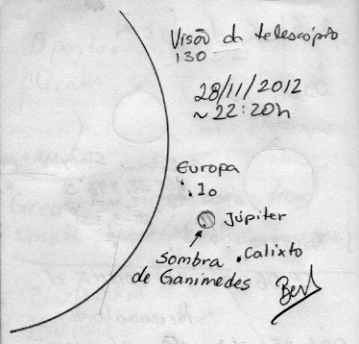 Visão do telescópio
130
28/11/2012
~ 22:20h
Europa
. Io
Júpiter
Sombra
de Ganimedes
. Calixto